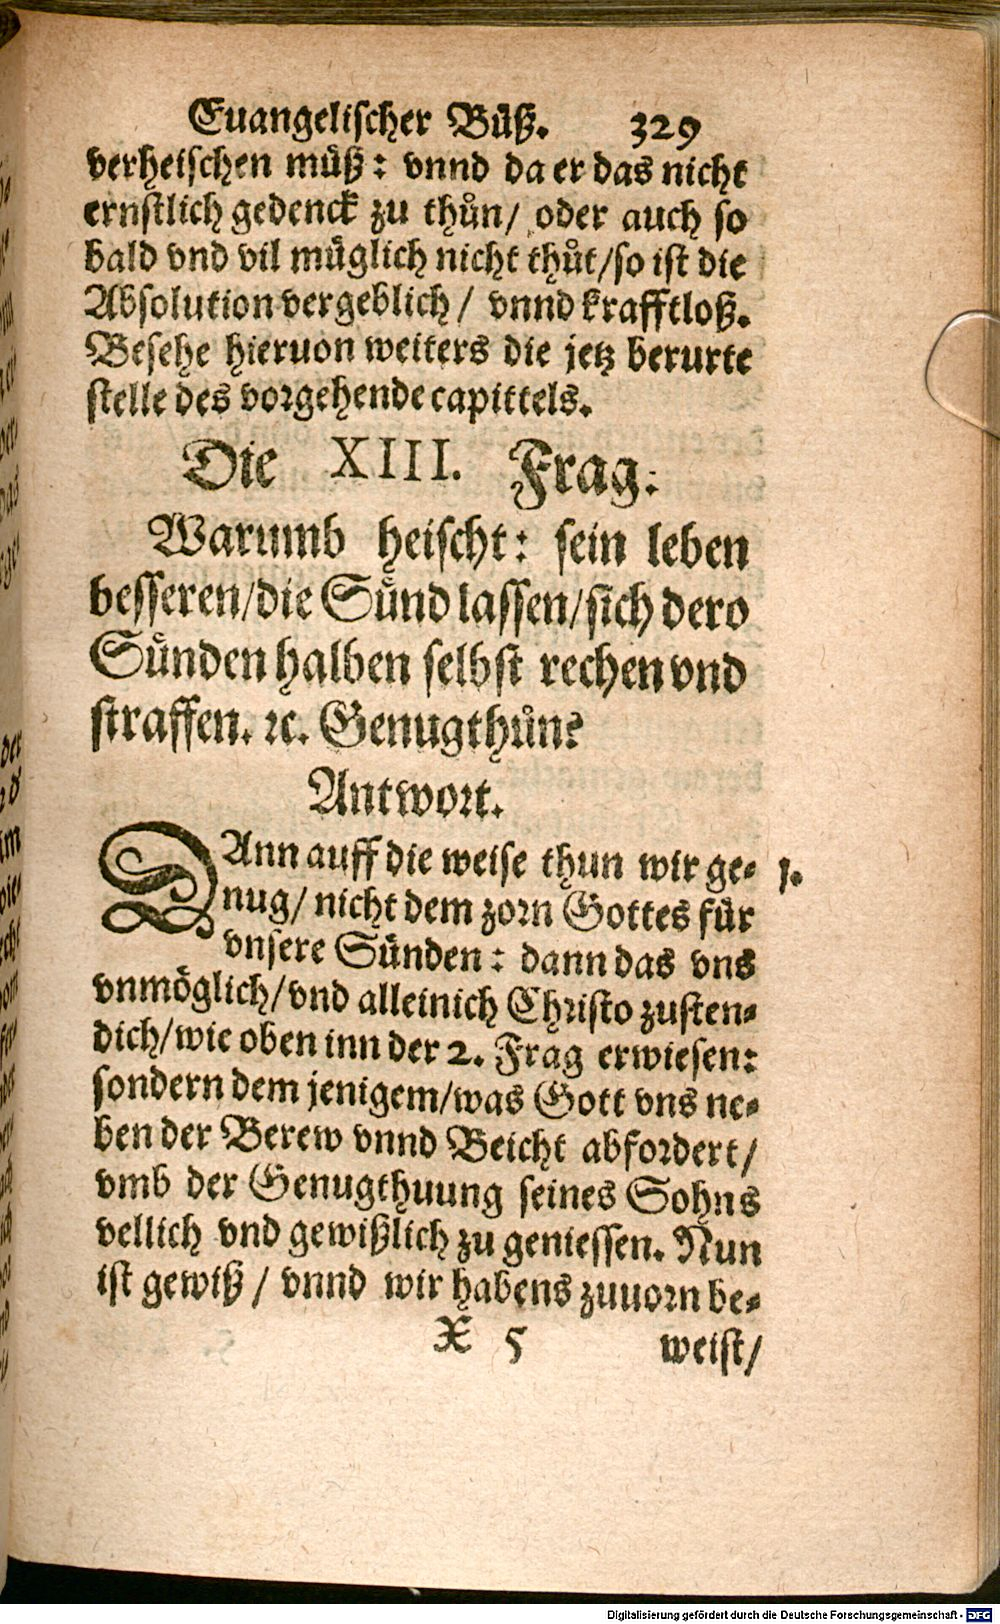 Euangelischer Bůß. 329
verheischen můß: vnnd da er das nicht
ernstlich gedenck zu thůn/ oder auch so
bald vnd vil müglich nicht thůt/so ist die
Absolution vergeblich/ vnnd krafftloß.
Besehe hieruon weiters die jetz berurte
stelle des vorgehende capittels.
Die XIII. Frag:
Warumb heischt: sein leben
besseren/die Sünd lassen/sich dero
Sünden halben selbst rechen vnd
straffen. ꝛc. Genugthůn?
Antwort.
DAnn auff die weise thun wir ge- 1.
nug/ nicht dem zorn Gottes für
vnsere Sünden: dann das vns
vnmöglich/vnd alleinich Christo zusten-
dich/wie oben inn der 2. Frag erwiesen:
sondern dem jenigem/was Gott vns ne-
ben der Berew vnnd Beicht abfordert/
vmb der Genugthuung seines Sohns
vellich vnd gewißlich zu geniessen. Nun
ist gewiß / vnnd wir habens zuuorn be-
X 5 weist/
Digitalisierung gefördert durch die Deutsche Forschungsgemeinschaft - DFG